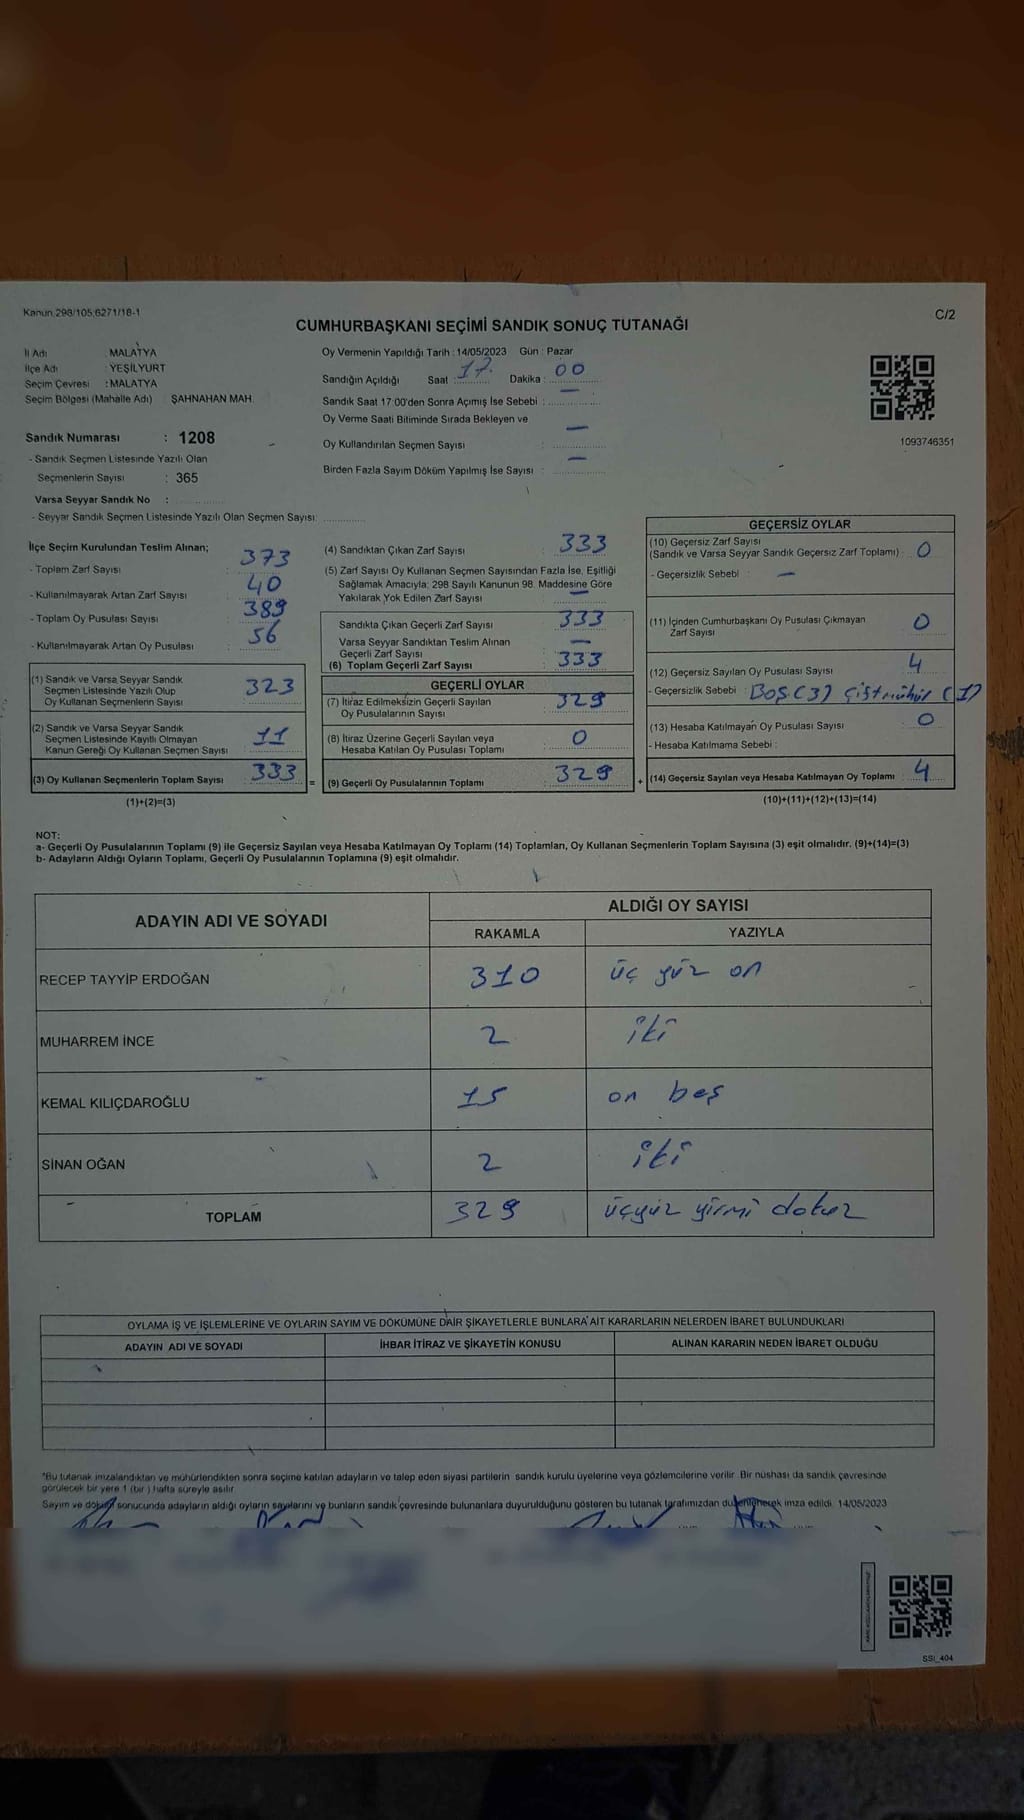 Kanun.298/105,6271/18-1
C/2
CUMHURBAŞKANI SEÇİMİ SANDIK SONUÇ TUTANAĞI
İl Adı : MALATYA
İlçe Adı : YEŞİLYURT
Seçim Çevresi : MALATYA
Seçim Bölgesi (Mahalle Adı) ŞAHNAHAN MAH.
Oy Vermenin Yapıldığı Tarih : 14/05/2023 Gün : Pazar
Sandığın Açıldığı Saat : 17 Dakika : 00
Sandık Saat 17:00'den Sonra Açımış İse Sebebi : —
Oy Verme Saati Bitiminde Sırada Bekleyen ve
Oy Kullandırılan Seçmen Sayısı : —
Birden Fazla Sayım Döküm Yapılmış İse Sayısı : —
1093746351
Sandık Numarası : 1208
- Sandık Seçmen Listesinde Yazılı Olan
Seçmenlerin Sayısı : 365
Varsa Seyyar Sandık No :
- Seyyar Sandık Seçmen Listesinde Yazılı Olan Seçmen Sayısı:
İlçe Seçim Kurulundan Teslim Alınan;
- Toplam Zarf Sayısı : 373
- Kullanılmayarak Artan Zarf Sayısı : 40
- Toplam Oy Pusulası Sayısı : 389
- Kullanılmayarak Artan Oy Pusulası : 56
(1) Sandık ve Varsa Seyyar Sandık
Seçmen Listesinde Yazılı Olup
Oy Kullanan Seçmenlerin Sayısı 323
(2) Sandık ve Varsa Seyyar Sandık
Seçmen Listesinde Kayıtlı Olmayan
Kanun Gereği Oy Kullanan Seçmen Sayısı 11
(3) Oy Kullanan Seçmenlerin Toplam Sayısı 333
(1)+(2)=(3)
(4) Sandıktan Çıkan Zarf Sayısı : 333
(5) Zarf Sayısı Oy Kullanan Seçmen Sayısından Fazla İse, Eşitliği
Sağlamak Amacıyla; 298 Sayılı Kanunun 98. Maddesine Göre
Yakılarak Yok Edilen Zarf Sayısı : —
Sandıkta Çıkan Geçerli Zarf Sayısı : 333
Varsa Seyyar Sandıktan Teslim Alınan
Geçerli Zarf Sayısı : —
(6) Toplam Geçerli Zarf Sayısı : 333
GEÇERLİ OYLAR
(7) İtiraz Edilmeksizin Geçerli Sayılan
Oy Pusulalarının Sayısı 329
(8) İtiraz Üzerine Geçerli Sayılan veya
Hesaba Katılan Oy Pusulası Toplamı 0
= (9) Geçerli Oy Pusulalarının Toplamı 329
GEÇERSİZ OYLAR
(10) Geçersiz Zarf Sayısı
(Sandık ve Varsa Seyyar Sandık Geçersiz Zarf Toplamı) : 0
- Geçersizlik Sebebi : —
(11) İçinden Cumhurbaşkanı Oy Pusulası Çıkmayan
Zarf Sayısı 0
(12) Geçersiz Sayılan Oy Pusulası Sayısı 4
- Geçersizlik Sebebi : Boş (3) Çift mühür (1)
(13) Hesaba Katılmayan Oy Pusulası Sayısı 0
- Hesaba Katılmama Sebebi :
+ (14) Geçersiz Sayılan veya Hesaba Katılmayan Oy Toplamı 4
(10)+(11)+(12)+(13)=(14)
NOT:
a- Geçerli Oy Pusulalarının Toplamı (9) ile Geçersiz Sayılan veya Hesaba Katılmayan Oy Toplamı (14) Toplamları, Oy Kullanan Seçmenlerin Toplam Sayısına (3) eşit olmalıdır. (9)+(14)=(3)
b- Adayların Aldığı Oyların Toplamı, Geçerli Oy Pusulalarının Toplamına (9) eşit olmalıdır.
ADAYIN ADI VE SOYADI ALDIĞI OY SAYISI
RAKAMLA YAZIYLA
RECEP TAYYİP ERDOĞAN 310 üç yüz on
MUHARREM İNCE 2 iki
KEMAL KILIÇDAROĞLU 15 on beş
SİNAN OĞAN 2 iki
TOPLAM 329 üçyüz yirmi dokuz
OYLAMA İŞ VE İŞLEMLERİNE VE OYLARIN SAYIM VE DÖKÜMÜNE DAİR ŞİKAYETLERLE BUNLARA AİT KARARLARIN NELERDEN İBARET BULUNDUKLARI
ADAYIN ADI VE SOYADI İHBAR İTİRAZ VE ŞİKAYETİN KONUSU ALINAN KARARIN NEDEN İBARET OLDUĞU
*Bu tutanak imzalandıktan ve mühürlendikten sonra seçime katılan adayların ve talep eden siyasi partilerin sandık kurulu üyelerine veya gözlemcilerine verilir. Bir nüshası da sandık çevresinde
görülecek bir yere 1 (bir) hafta süreyle asılır.
Sayım ve döküm sonucunda adayların aldığı oyların sayılarını ve bunların sandık çevresinde bulunanlara duyurulduğunu gösteren bu tutanak tarafımızdan düzenlenerek imza edildi. 14/05/2023
SSI_404